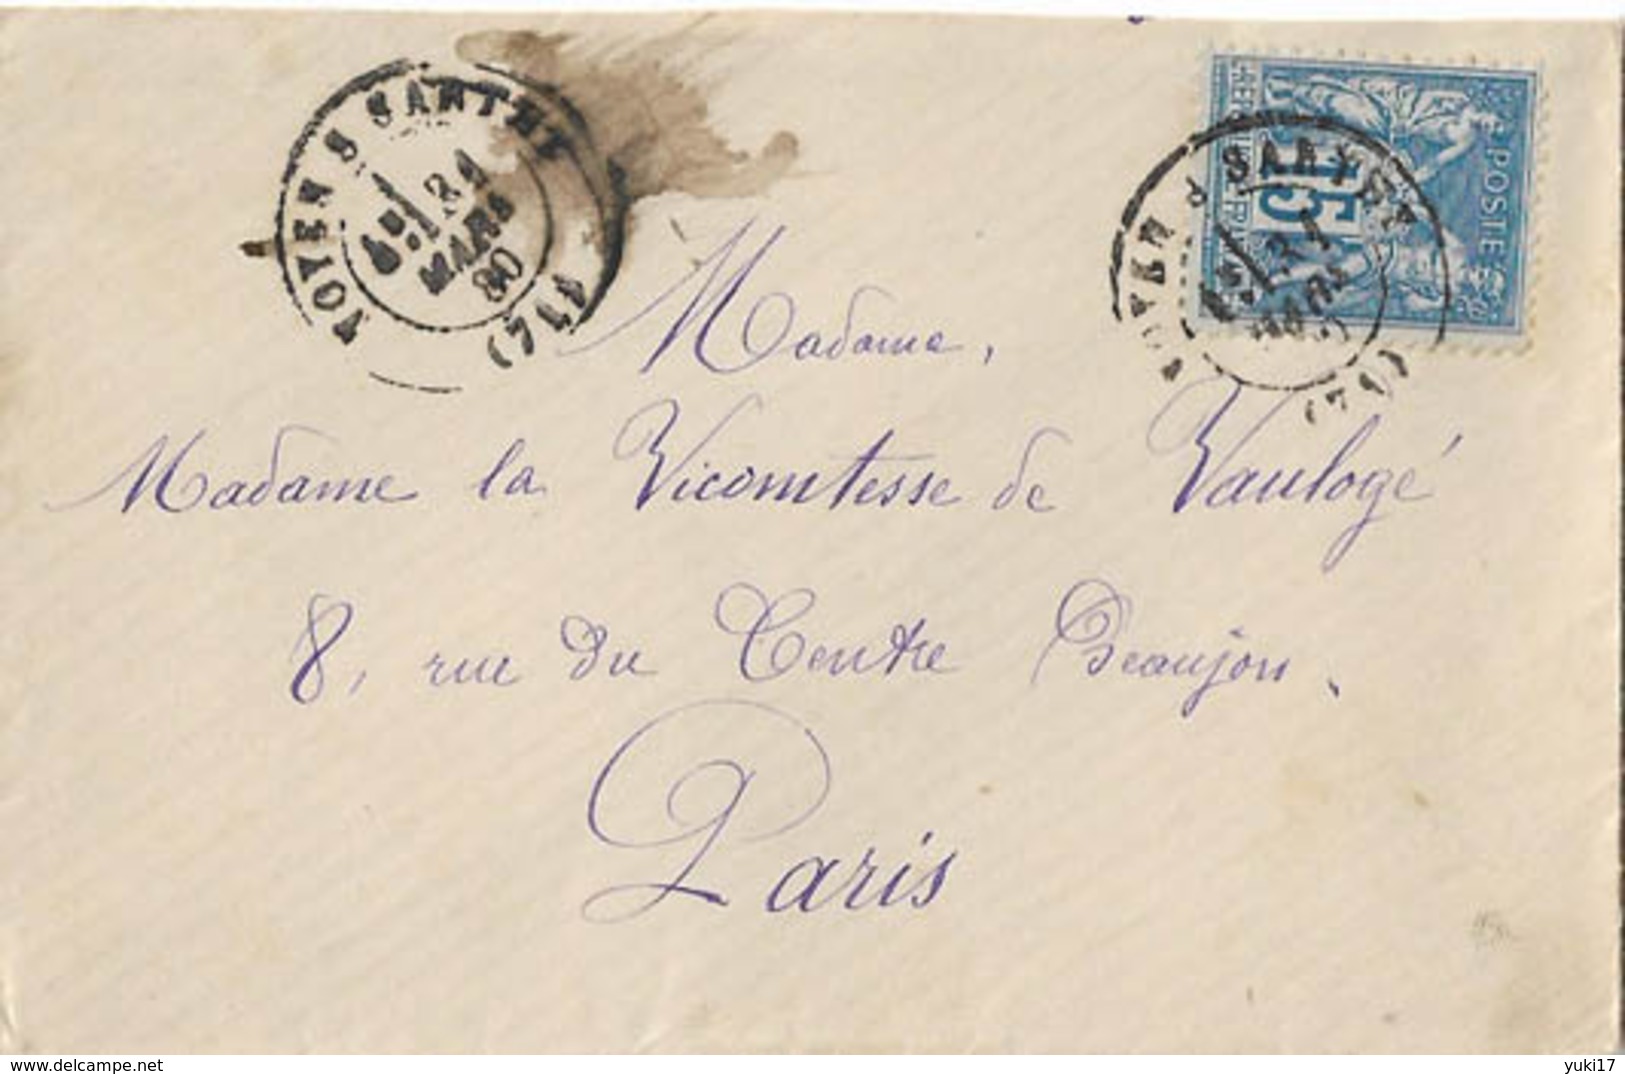 NOYEN S SARTHE
31
MARS
80
(71)
REPUB. FRANC.
15
POSTE
NOYEN S SARTHE
31
MARS
(71)
Madame,
Madame la Vicomtesse de Vaulogé
8, rue du Centre Beaujon.
Paris
www.delcampe.net
yuki17